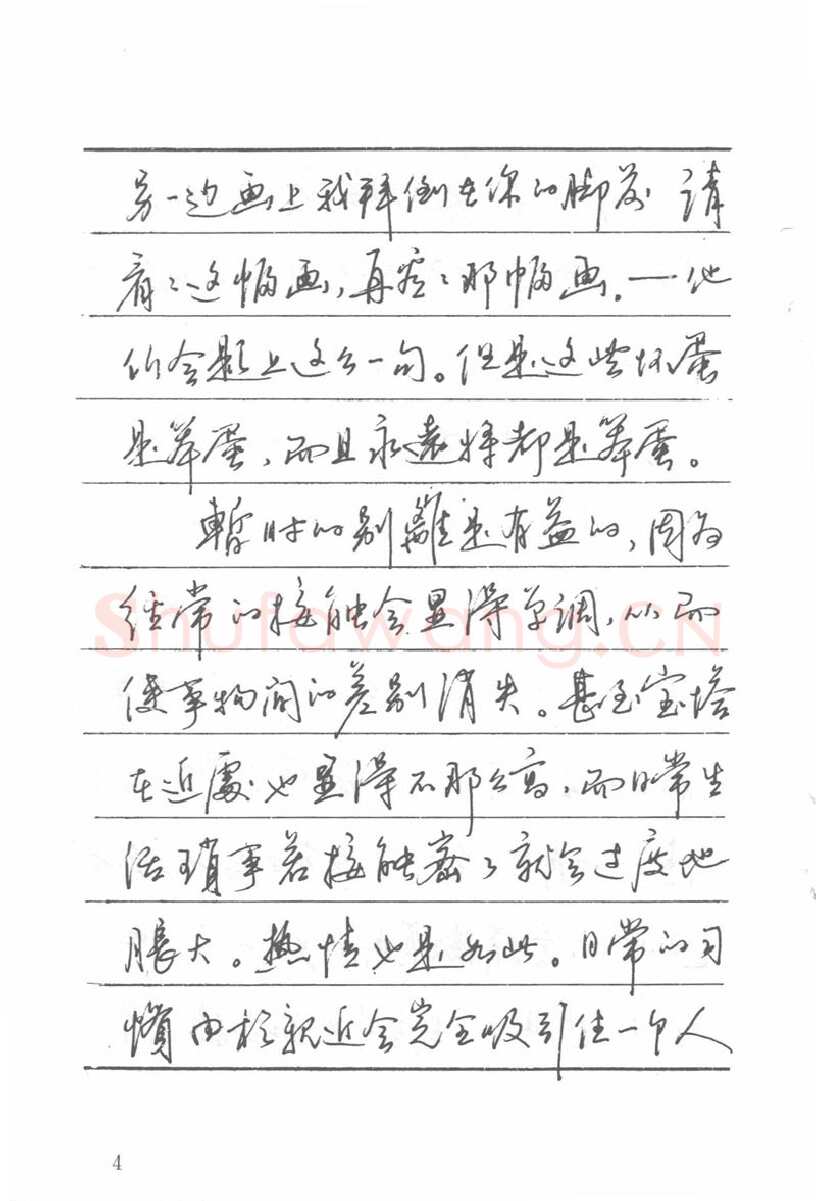 另一边画上我拜倒在你的脚前 请
看看这幅画,再看看那幅画。—他
们会题上这么一句。但是这些坏蛋
是笨蛋,而且永遠将都是笨蛋。
暫时的别離是有益的,因为
经常的接触会显得单调,从而
使事物间的差别消失。甚至宝塔
在近處也显得不那么高,而日常生
活琐事若接触密了就会过度地
脹大。热情也是如此。日常的习
惯由於親近会完全吸引住一个人
Shufawang.CN
4